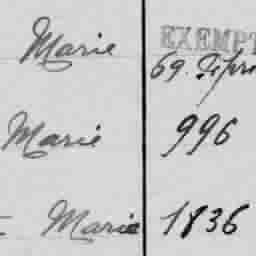 Marie EXEMPT
69.
Marie 996
Marie 1836